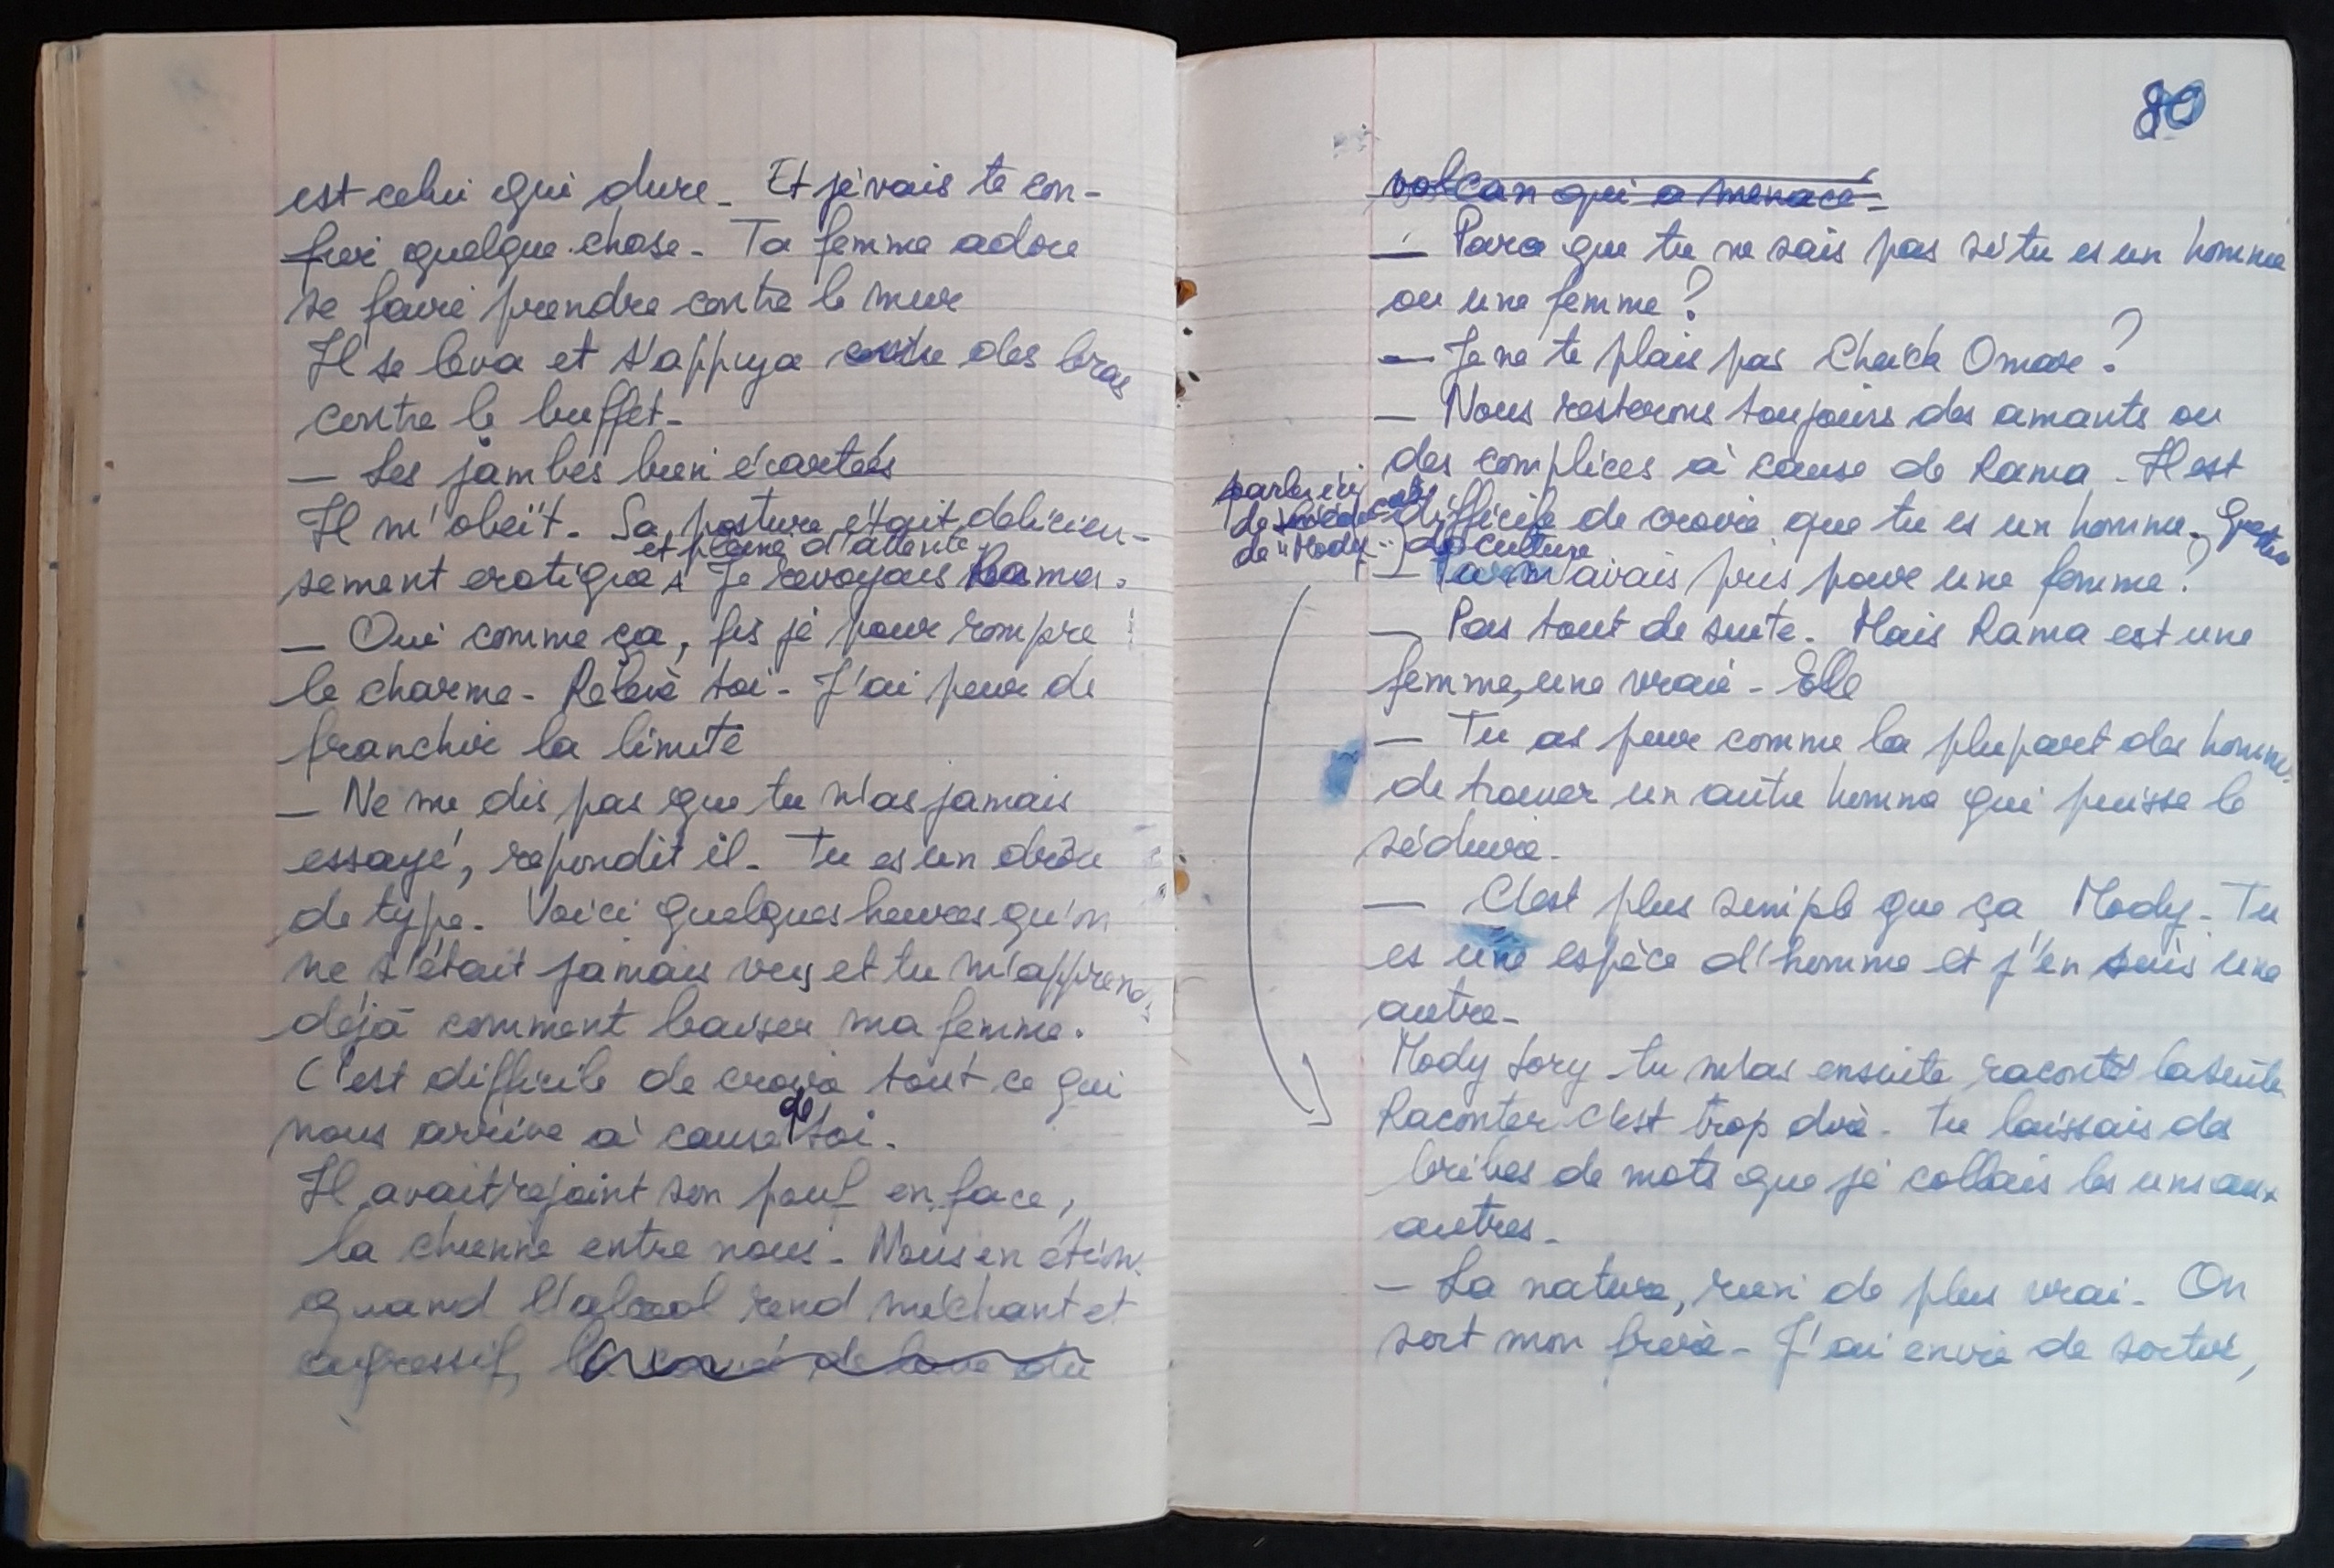 est celui qui dure. Et je vais te con-
fier quelque chose. Ta femme adore
se faire prendre contre le mur
Il se leva et s'appuya des bras
contre le buffet.
— Les jambes bien écartées
Il m'obéït. Sa posture était délicieu-
et pleine d'attente
sement erotique. Je revoyais Rama.
— Oui comme ça, fis je pour rompre
le charme. Relève toi. J'ai peur de
franchir la limite
— Ne me dis pas que tu n'as jamais
essayé, repondit il. Tu es un drôle
de type. Voici quelques heures qu'on
ne s'était jamais vus et tu m'apprends
déjà comment baiser ma femme.
C'est difficile de croire tout ce qui
nous arrive à cause de toi.
Il avait rejoint son pouf en face,
la chienne entre nous. Nous en étions
quand l'alcool rend méchant et
agressif, de lave du
80
volcan qui a menacé.
— Parce que tu ne sais pas si tu es un homme
ou une femme?
— Je ne te plais pas Cheick Omar?
— Nous resterons toujours des amants ou
des complices à cause de Rama. Il est
difficile de croire que tu es un homme.
parler ici
de
de "Mody"
de culture
— Tu m'avais pris pour une femme?
— Pas tout de suite. Mais Rama est une
femme, une vraie. Elle
— Tu as peur comme la plupart des hommes
de trouver un autre homme qui puisse le
séduire.
— C'est plus simple que ça, Mody. Tu
es une espèce d'homme et j'en suis une
autre.
Mody Sory tu m'as ensuite raconté la suite
Raconter c'est trop dire. Tu laissais des
bribes de mots que je collais les uns aux
autres.
— La nature, rien de plus vrai. On
sort mon frère. J'ai envie de sortir,